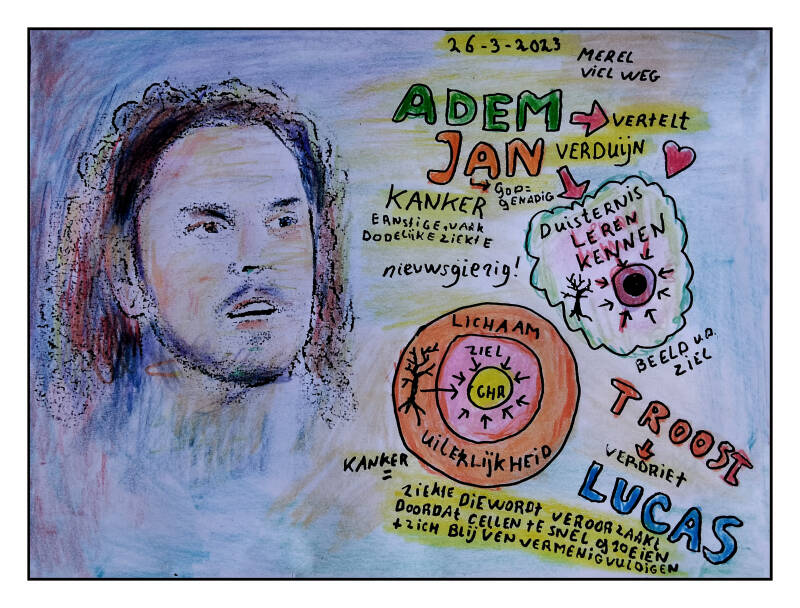 26-3-2023
MEREL
VIEL WEG
ADEM
VERTELT
JAN
VERDUIJN
GOD=
GENADIG
KANKER
ERNSTIGE, VAAK
DODELIJKE ZIEKTE
nieuwsgierig!
DUISTERNIS
LEREN
KENNEN
BEELD V.D.
ZIEL
LICHAAM
ZIEL
CHR
UITERLIJKHEID
TROOST
VERDRIET
LUCAS
KANKER
=
ZIEKTE DIE WORDT VEROORZAAKT
DOORDAT CELLEN TE SNEL GROEIEN
+ ZICH BLIJVEN VERMENIGVULDIGEN